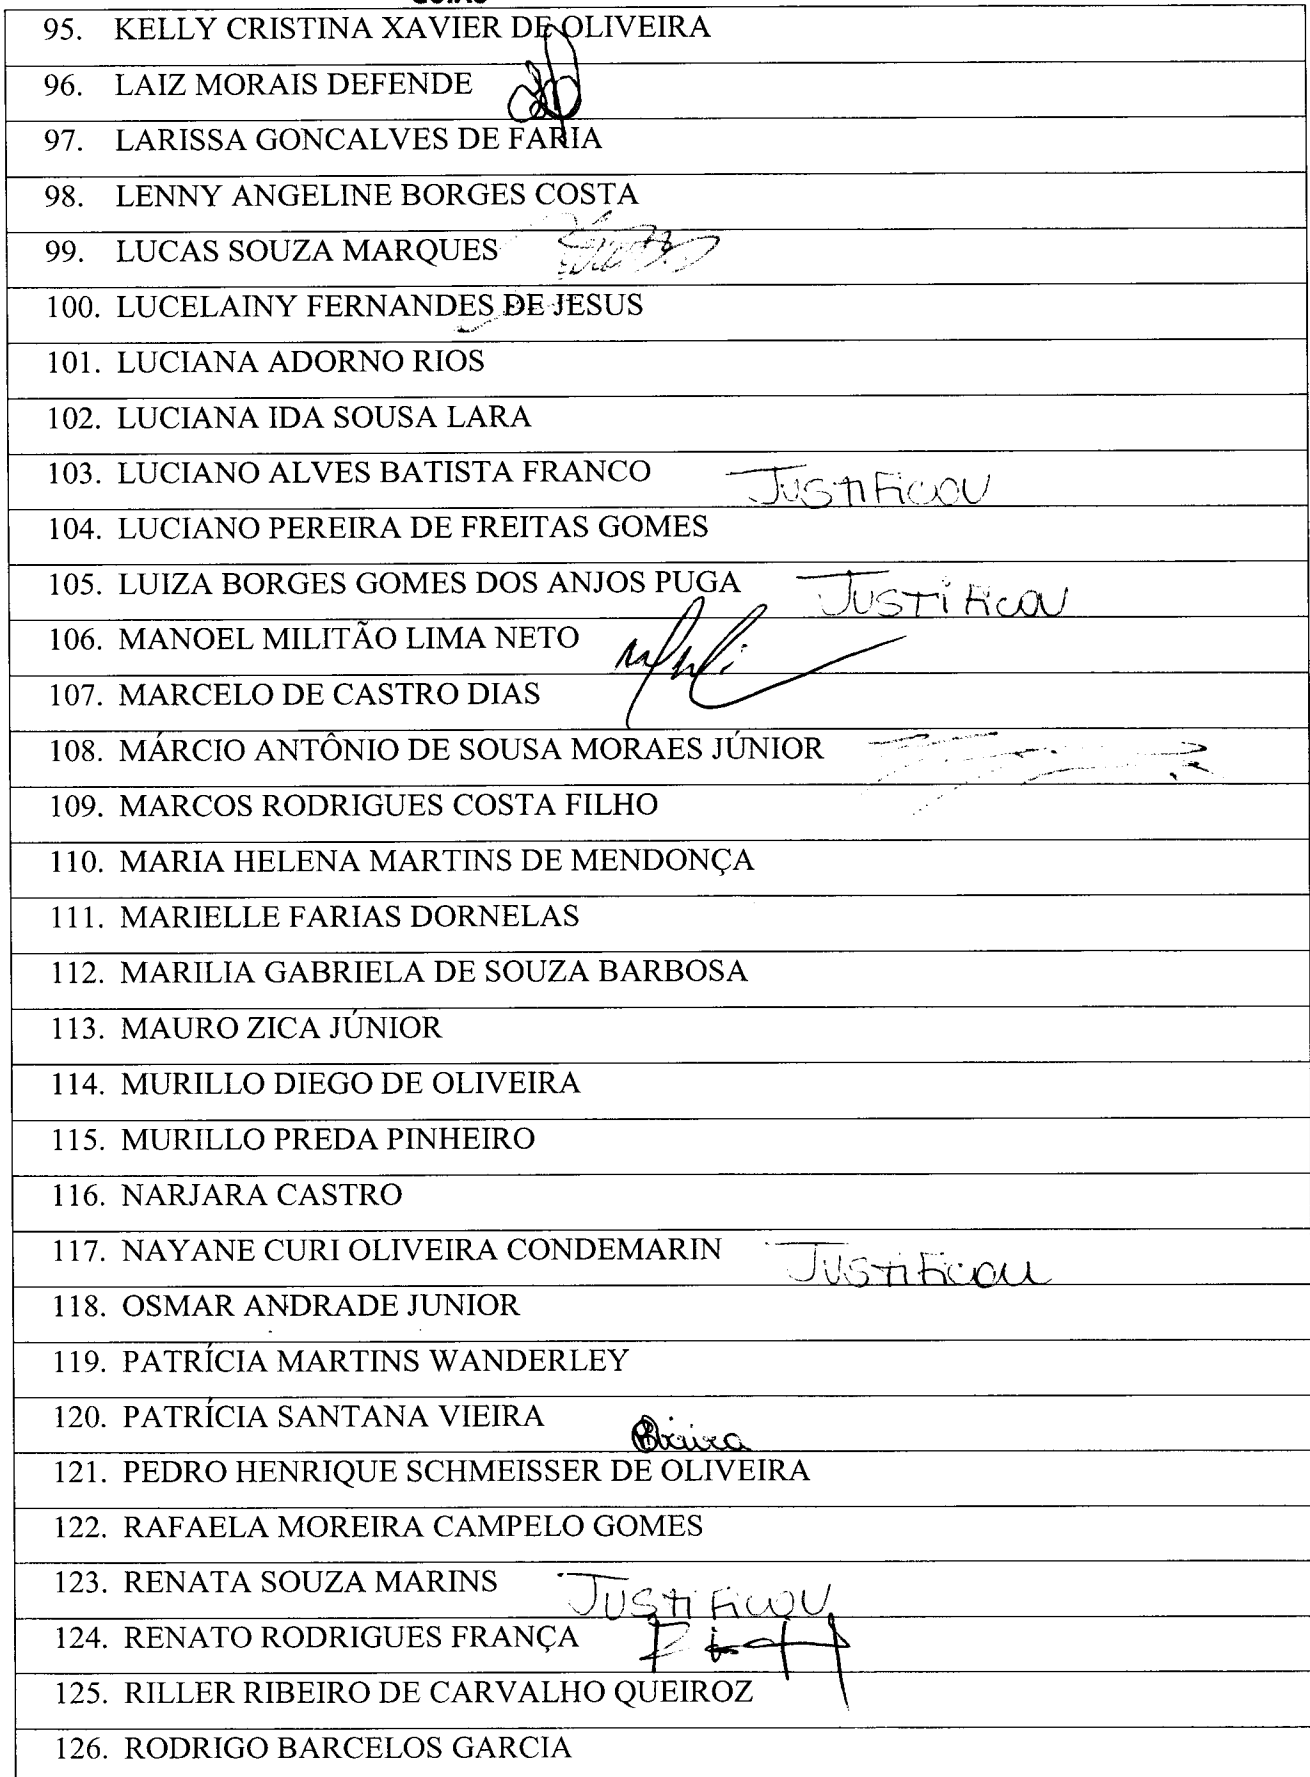 95. KELLY CRISTINA XAVIER DE OLIVEIRA
96. LAIZ MORAIS DEFENDE
97. LARISSA GONCALVES DE FARIA
98. LENNY ANGELINE BORGES COSTA
99. LUCAS SOUZA MARQUES
100. LUCELAINY FERNANDES DE JESUS
101. LUCIANA ADORNO RIOS
102. LUCIANA IDA SOUSA LARA
103. LUCIANO ALVES BATISTA FRANCO JUSTIFICOU
104. LUCIANO PEREIRA DE FREITAS GOMES
105. LUIZA BORGES GOMES DOS ANJOS PUGA JUSTIFICOU
106. MANOEL MILITÃO LIMA NETO
107. MARCELO DE CASTRO DIAS
108. MÁRCIO ANTÔNIO DE SOUSA MORAES JÚNIOR
109. MARCOS RODRIGUES COSTA FILHO
110. MARIA HELENA MARTINS DE MENDONÇA
111. MARIELLE FARIAS DORNELAS
112. MARILIA GABRIELA DE SOUZA BARBOSA
113. MAURO ZICA JÚNIOR
114. MURILLO DIEGO DE OLIVEIRA
115. MURILLO PREDA PINHEIRO
116. NARJARA CASTRO
117. NAYANE CURI OLIVEIRA CONDEMARIN JUSTIFICOU
118. OSMAR ANDRADE JUNIOR
119. PATRÍCIA MARTINS WANDERLEY
120. PATRÍCIA SANTANA VIEIRA
121. PEDRO HENRIQUE SCHMEISSER DE OLIVEIRA
122. RAFAELA MOREIRA CAMPELO GOMES
123. RENATA SOUZA MARINS JUSTIFICOU
124. RENATO RODRIGUES FRANÇA
125. RILLER RIBEIRO DE CARVALHO QUEIROZ
126. RODRIGO BARCELOS GARCIA